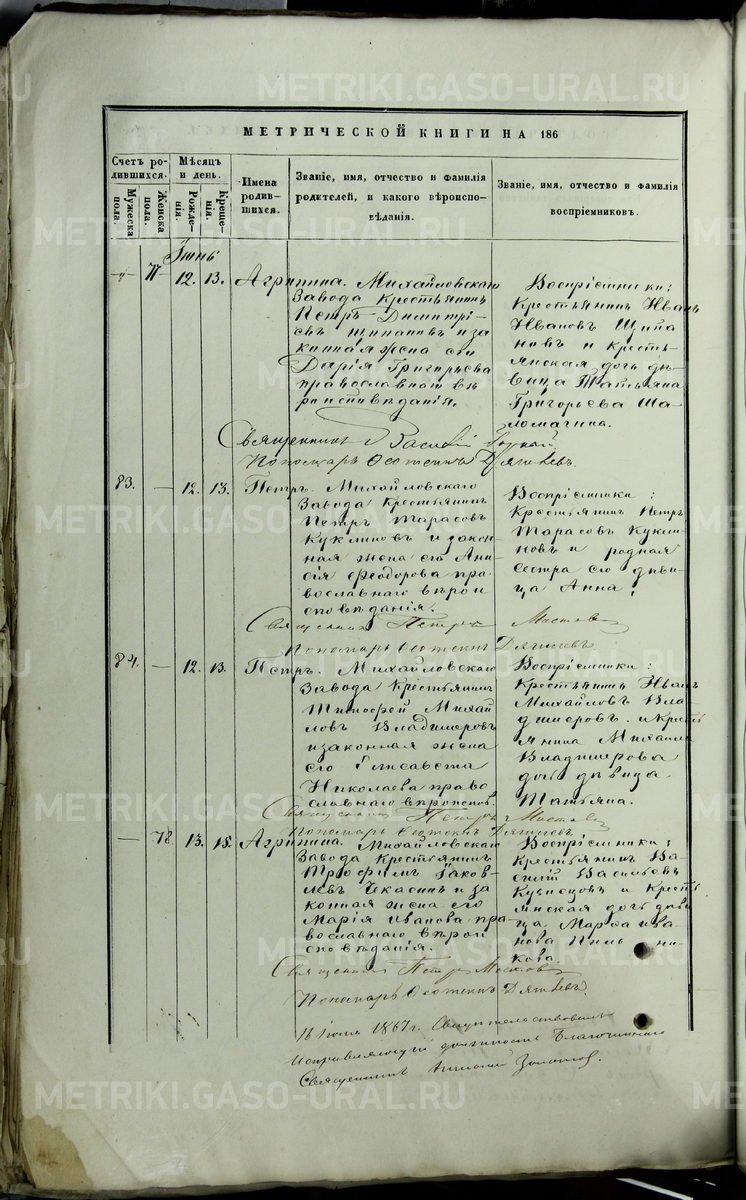 METRIKI.GASO-URAL.RU
МЕТРИЧЕСКОЙ КНИГИ НА 186
Счет родившихся.
Мужеска пола.
Женска пола.
Мѣсяцъ и день.
Рожденія.
Крещенія.
Имена родившихся.
Званіе, имя, отчество и фамилія родителей, и какого вѣроисповѣданія.
Званіе, имя, отчество и фамилія воспріемниковъ.
Іюнь
77 12. 13. Агрипина.
Михайловскаго
Завода Крестьянинъ
Петръ Димитрі-
евъ Щипановъ и за
конная жена его
Дарія Григорьева
православнаго вѣ
роисповѣданія.
Воспріемники:
Крестьянинъ Иванъ
Ивановъ Щипа
новъ и кресть-
янская дочь дѣ-
вица Татьяна
Григорьева Ша-
ломагина.
Священникъ Василій
Пономарь Ѳеотекнъ Дягилевъ.
83. — 12. 13. Петръ.
Михайловскаго
Завода Крестьянинъ
Петръ Тарасовъ
Куклиновъ и закон-
ная жена его Ани-
сія Феодорова пра-
вославнаго вѣрои
сповѣданія.
Воспріемники:
Крестьянинъ Петръ
Тарасовъ Кукли-
новъ и родная
сестра его дѣви-
ца Анна,
Священникъ Петръ
Пономарь Ѳеотекнъ Дягилевъ
84. — 12. 13. Петръ.
Михайловскаго
Завода Крестьянинъ
Тимофей Михай
ловъ Владимеровъ
и законная жена
его Елисавета
Николаева право
славнаго вѣроиспов.
Воспріемники:
Крестьянинъ Иванъ
Михайловъ Вла
димеровъ. и Кресть
янина Михаила
Владимерова
дочь дѣвица.
Татьяна.
Священникъ Петръ
Пономарь Ѳеотекнъ Дягилевъ
— 78 13. 15. Агрипина.
Михайловскаго
Завода Крестьянинъ
Трофимъ Іаков-
левъ Чкасинъ и за
конная жена его
Марія Иванова пра-
вославнаго вѣрои
сповѣданія.
Воспріемники:
Крестьянинъ Ва-
силій Васильевъ
Кузнецовъ и Кресть
янская дочь дѣви
ца Марѳа Ива-
нова
кова.
Священникъ Петръ
Пономарь Ѳеотекнъ Дягилевъ
1867 г. Свидѣтельствовалъ
Исправляющій должность Благочиннаго
Священникъ Золотовъ.